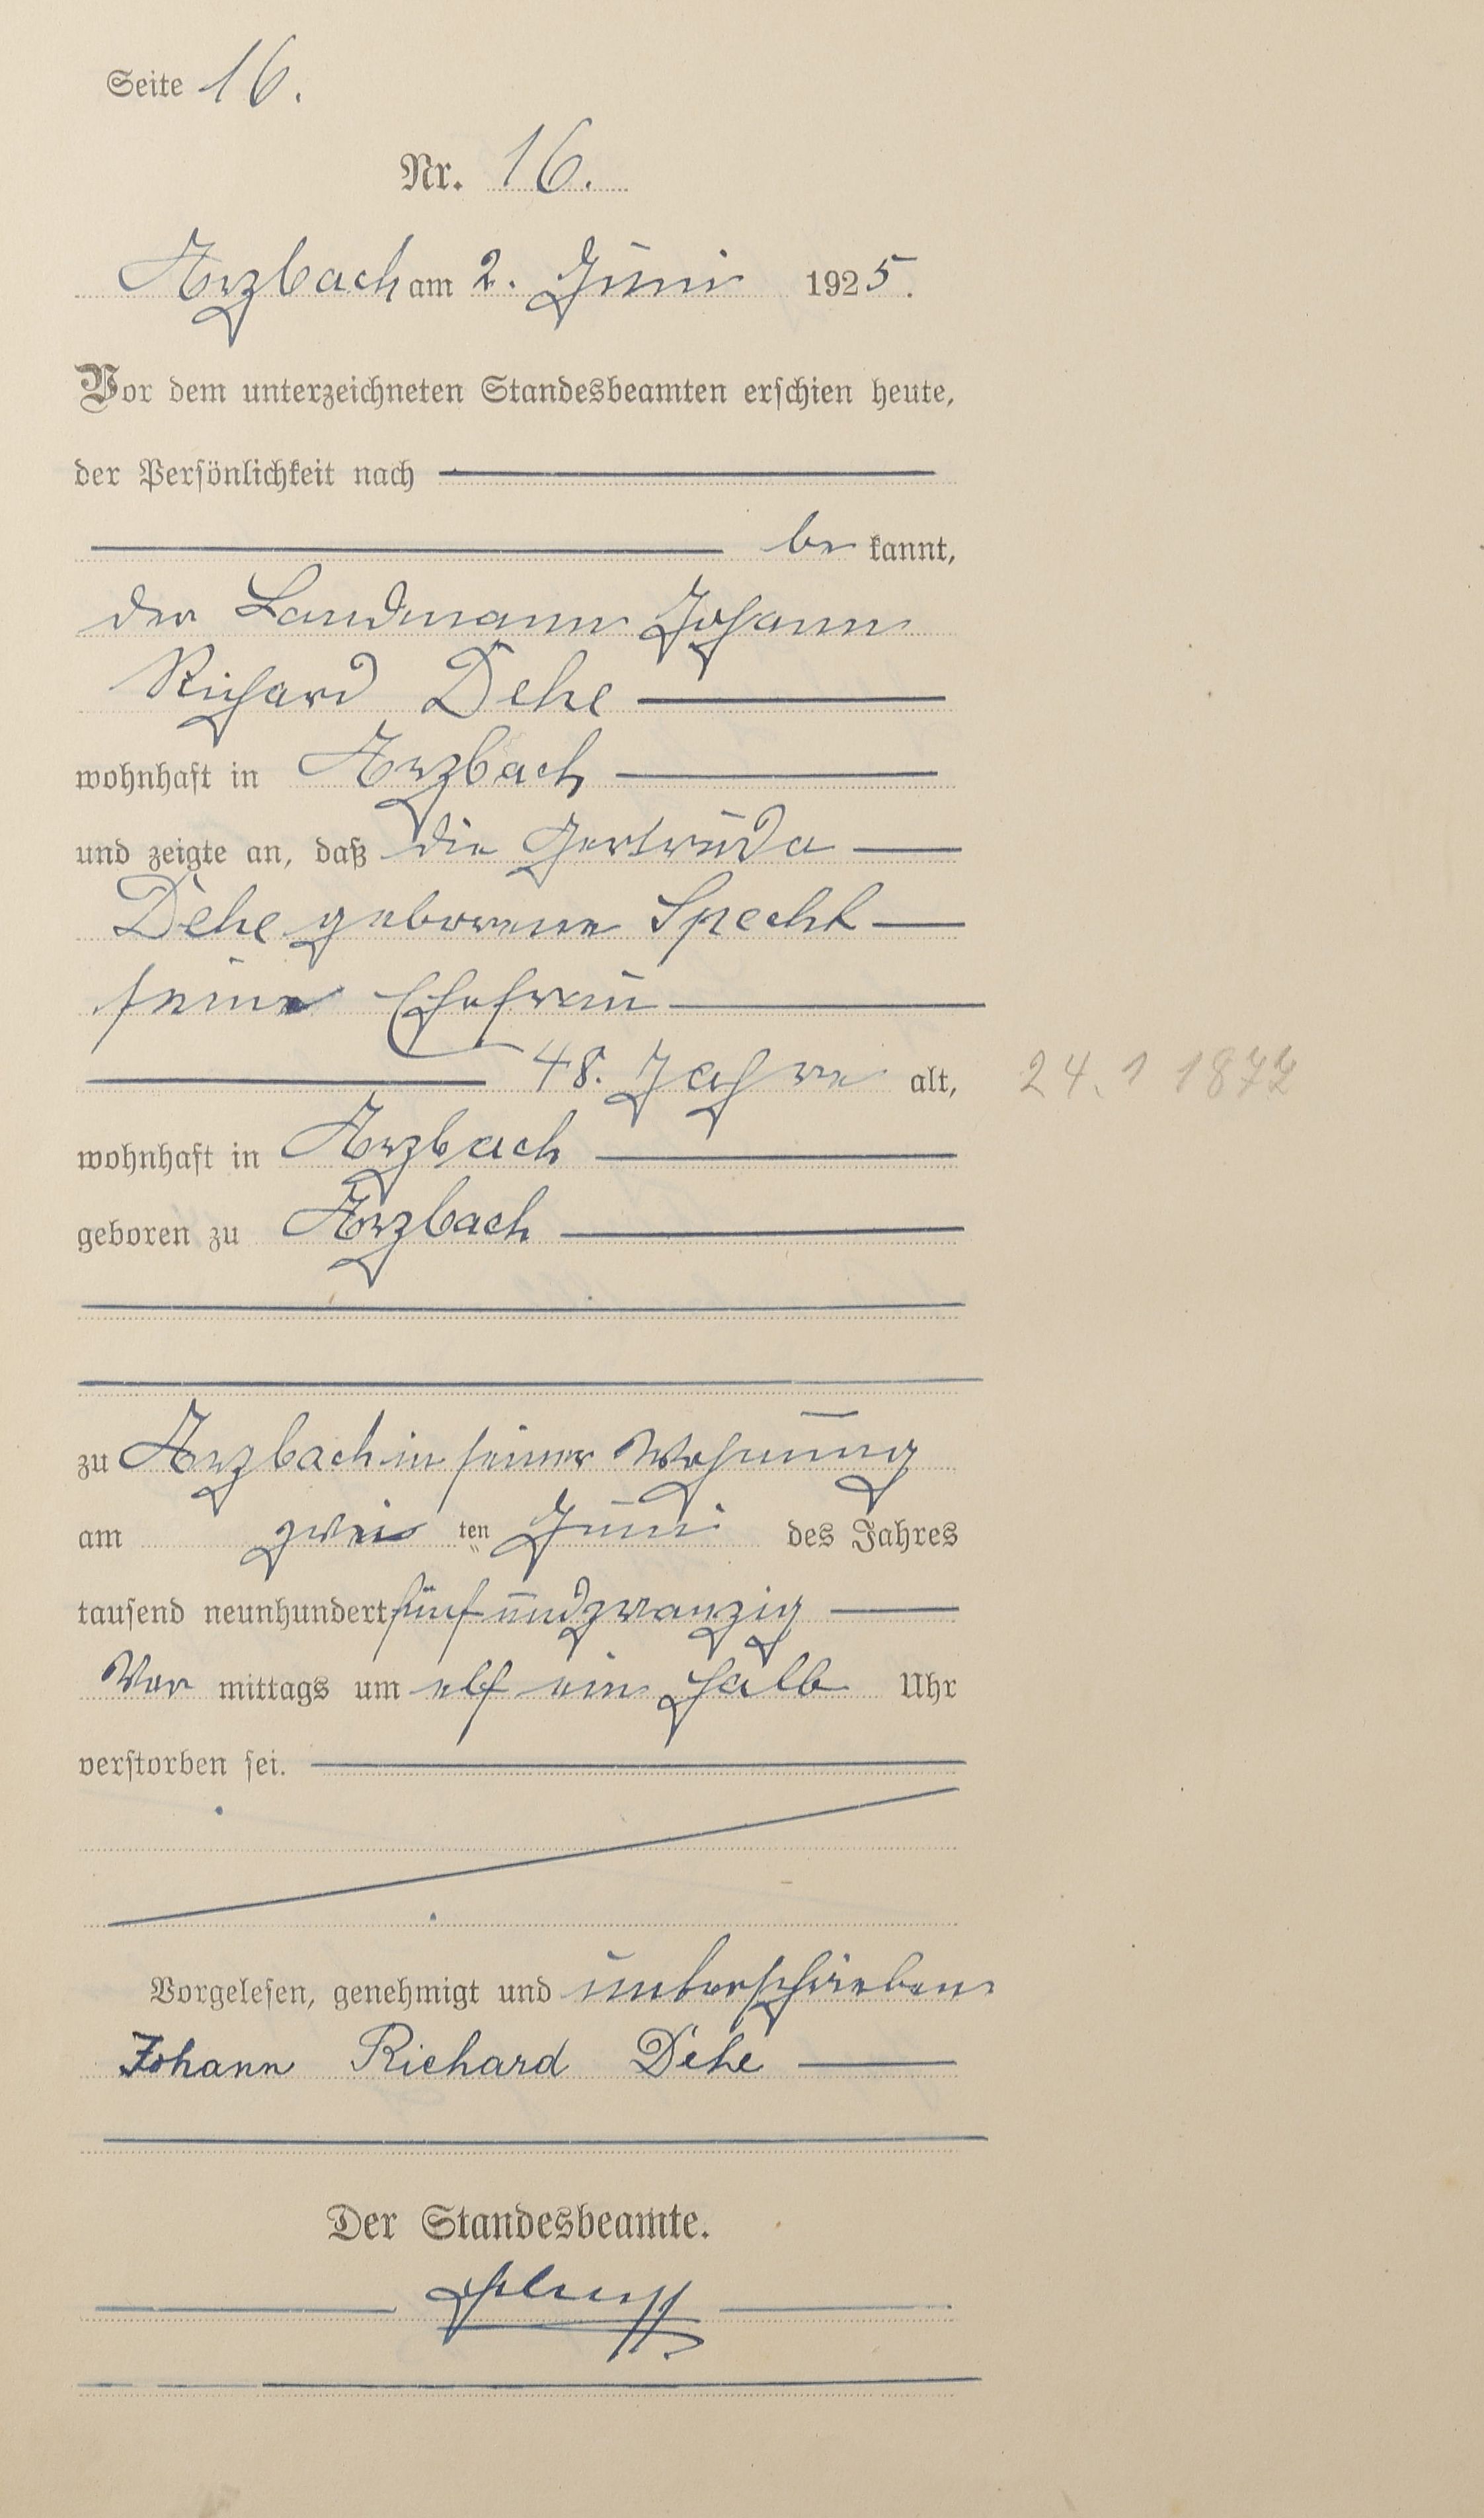 Seite 16.
Nr. 16.
Arzbach am 2. Juni 1925.
Vor dem unterzeichneten Standesbeamten erschien heute,
der Persönlichkeit nach
be kannt,
der Landmann Johann
Richard Dehe
wohnhaft in Arzbach
und zeigte an, daß die Gertruda
Dehe geborene Specht
seine Ehefrau
48. Jahre alt, 24. 1 1872
wohnhaft in Arzbach
geboren zu Arzbach
zu Arzbach in seiner Wohnung
am zwei ten Juni des Jahres
tausend neunhundert fünf und zwanzig
Vor mittags um elf ein halb Uhr
verstorben sei.
Vorgelesen, genehmigt und unterschrieben
Johann Richard Dehe
Der Standesbeamte.